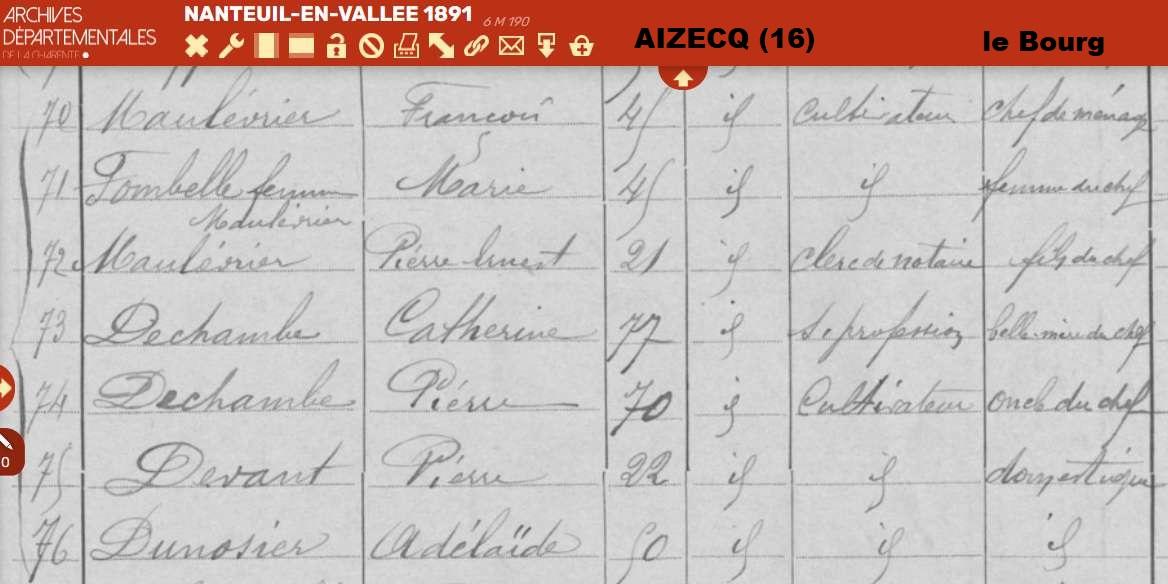 ARCHIVES
DÉPARTEMENTALES
DE LA CHARENTE
NANTEUIL-EN-VALLEE 1891 6 M 190
AIZECQ (16) le Bourg
70 Maulévrier François 45 id Cultivateur chef de ménage
71 Tombelle femme Marie 45 id id femme du chef
Maulévrier
72 Maulévrier Pierre Ernest 21 id clerc de notaire fils du chef
73 Dechambe Catherine 77 id s. profession belle-mère du chef
74 Dechambe Pierre 70 id Cultivateur oncle du chef
75 Devant Pierre 22 id id domestique
76 Dunosier Adélaïde 50 id id id
0